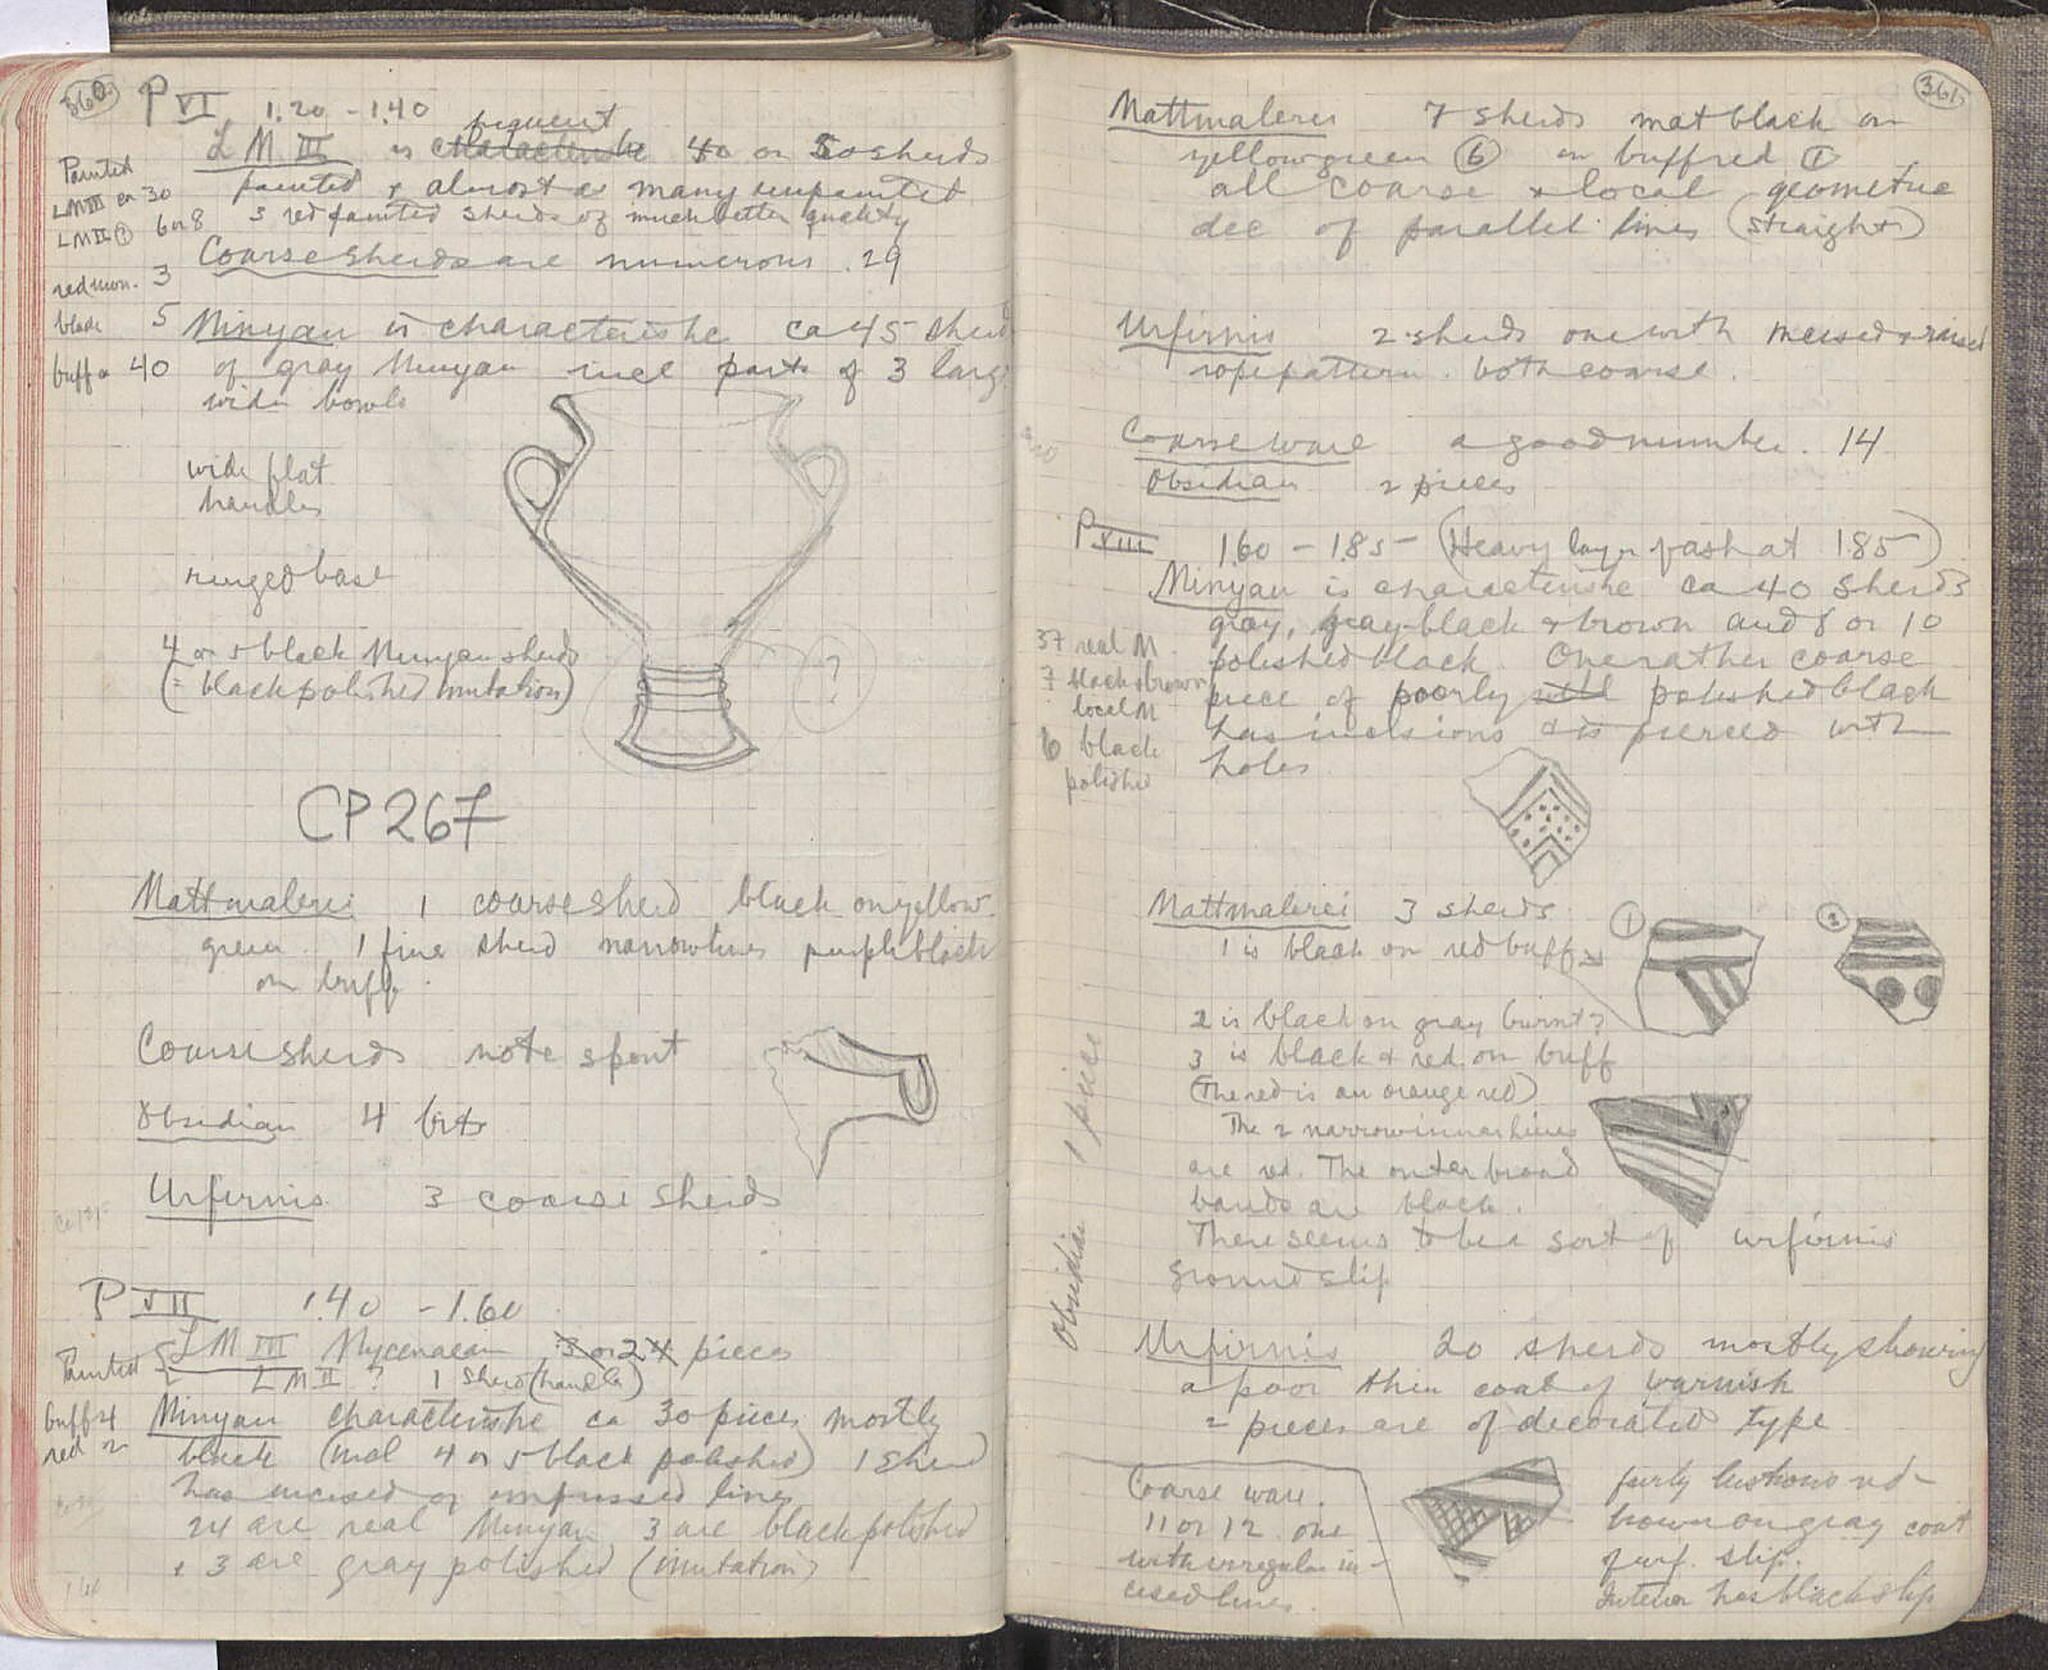 360
P VI 1.20 - 1.40
frequent
L M III is characteristic 40 or 50 sherds
painted & almost as many unpainted
3 red painted sherds of much better quality
Coarse sherds are numerous. 29
Painted
LM III ca 30
LM II ① 6 or 8
red mon. 3
black 5
buff a 40
Minyan is characteristic ca 45 sherds
of gray Minyan incl parts of 3 large
wide bowls
wide flat
handles
ringed base
4 or 5 black Minyan sherds
(= black polished imitation)
?
CP 267
Mattmalerei 1 coarse sherd black on yellow
green. 1 fine sherd narrow lines purple black
on buff.
Coarse sherds note spout
Obsidian 4 bits
Urfirnis 3 coarse sherds
P VII 1.40 - 1.60
Painted
L M III Mycenaean 3 or 2 4 pieces
L M II ? 1 sherd (handle)
buff 4
red 2
Minyan characteristic ca 30 pieces mostly
black (incl 4 or 5 black polished) 1 sherd
has incised or impressed lines
24 are real Minyan 3 are black polished
& 3 are gray polished (imitation)
361
Mattmalerei 7 sherds mat black on
yellow green ⑥ or buff red ①
all coarse & local geometric
dec of parallel lines (straight)
Urfirnis 2 sherds one with incised & raised
rope pattern. both coarse.
Coarse ware a good number. 14
Obsidian 2 pieces
P VIII 1.60 - 1.85 (Heavy layer of ash at 1.85)
Minyan is characteristic ca 40 sherds
gray, gray-black & brown and 8 or 10
polished black. One rather coarse
piece of poorly polished black
has incisions & is pierced with
holes
37 real M
7 black & brown
local M
6 black
polished
Mattmalerei 3 sherds
①
②
1 is black on red buff
2 is black on gray burnt?
3 is black & red on buff
(The red is an orange red)
The 2 narrow inner lines
are red. The outer broad
bands are black.
There seems to be a sort of urfirnis
ground slip
Obsidian 1 piece
Urfirnis 20 sherds mostly showing
a poor thin coat of varnish
2 pieces are of decorated type
Coarse ware.
11 or 12 one
with irregular in-
cised lines.
fairly lustrous red-
brown on gray coat
of urf. slip.
Interior has black slip